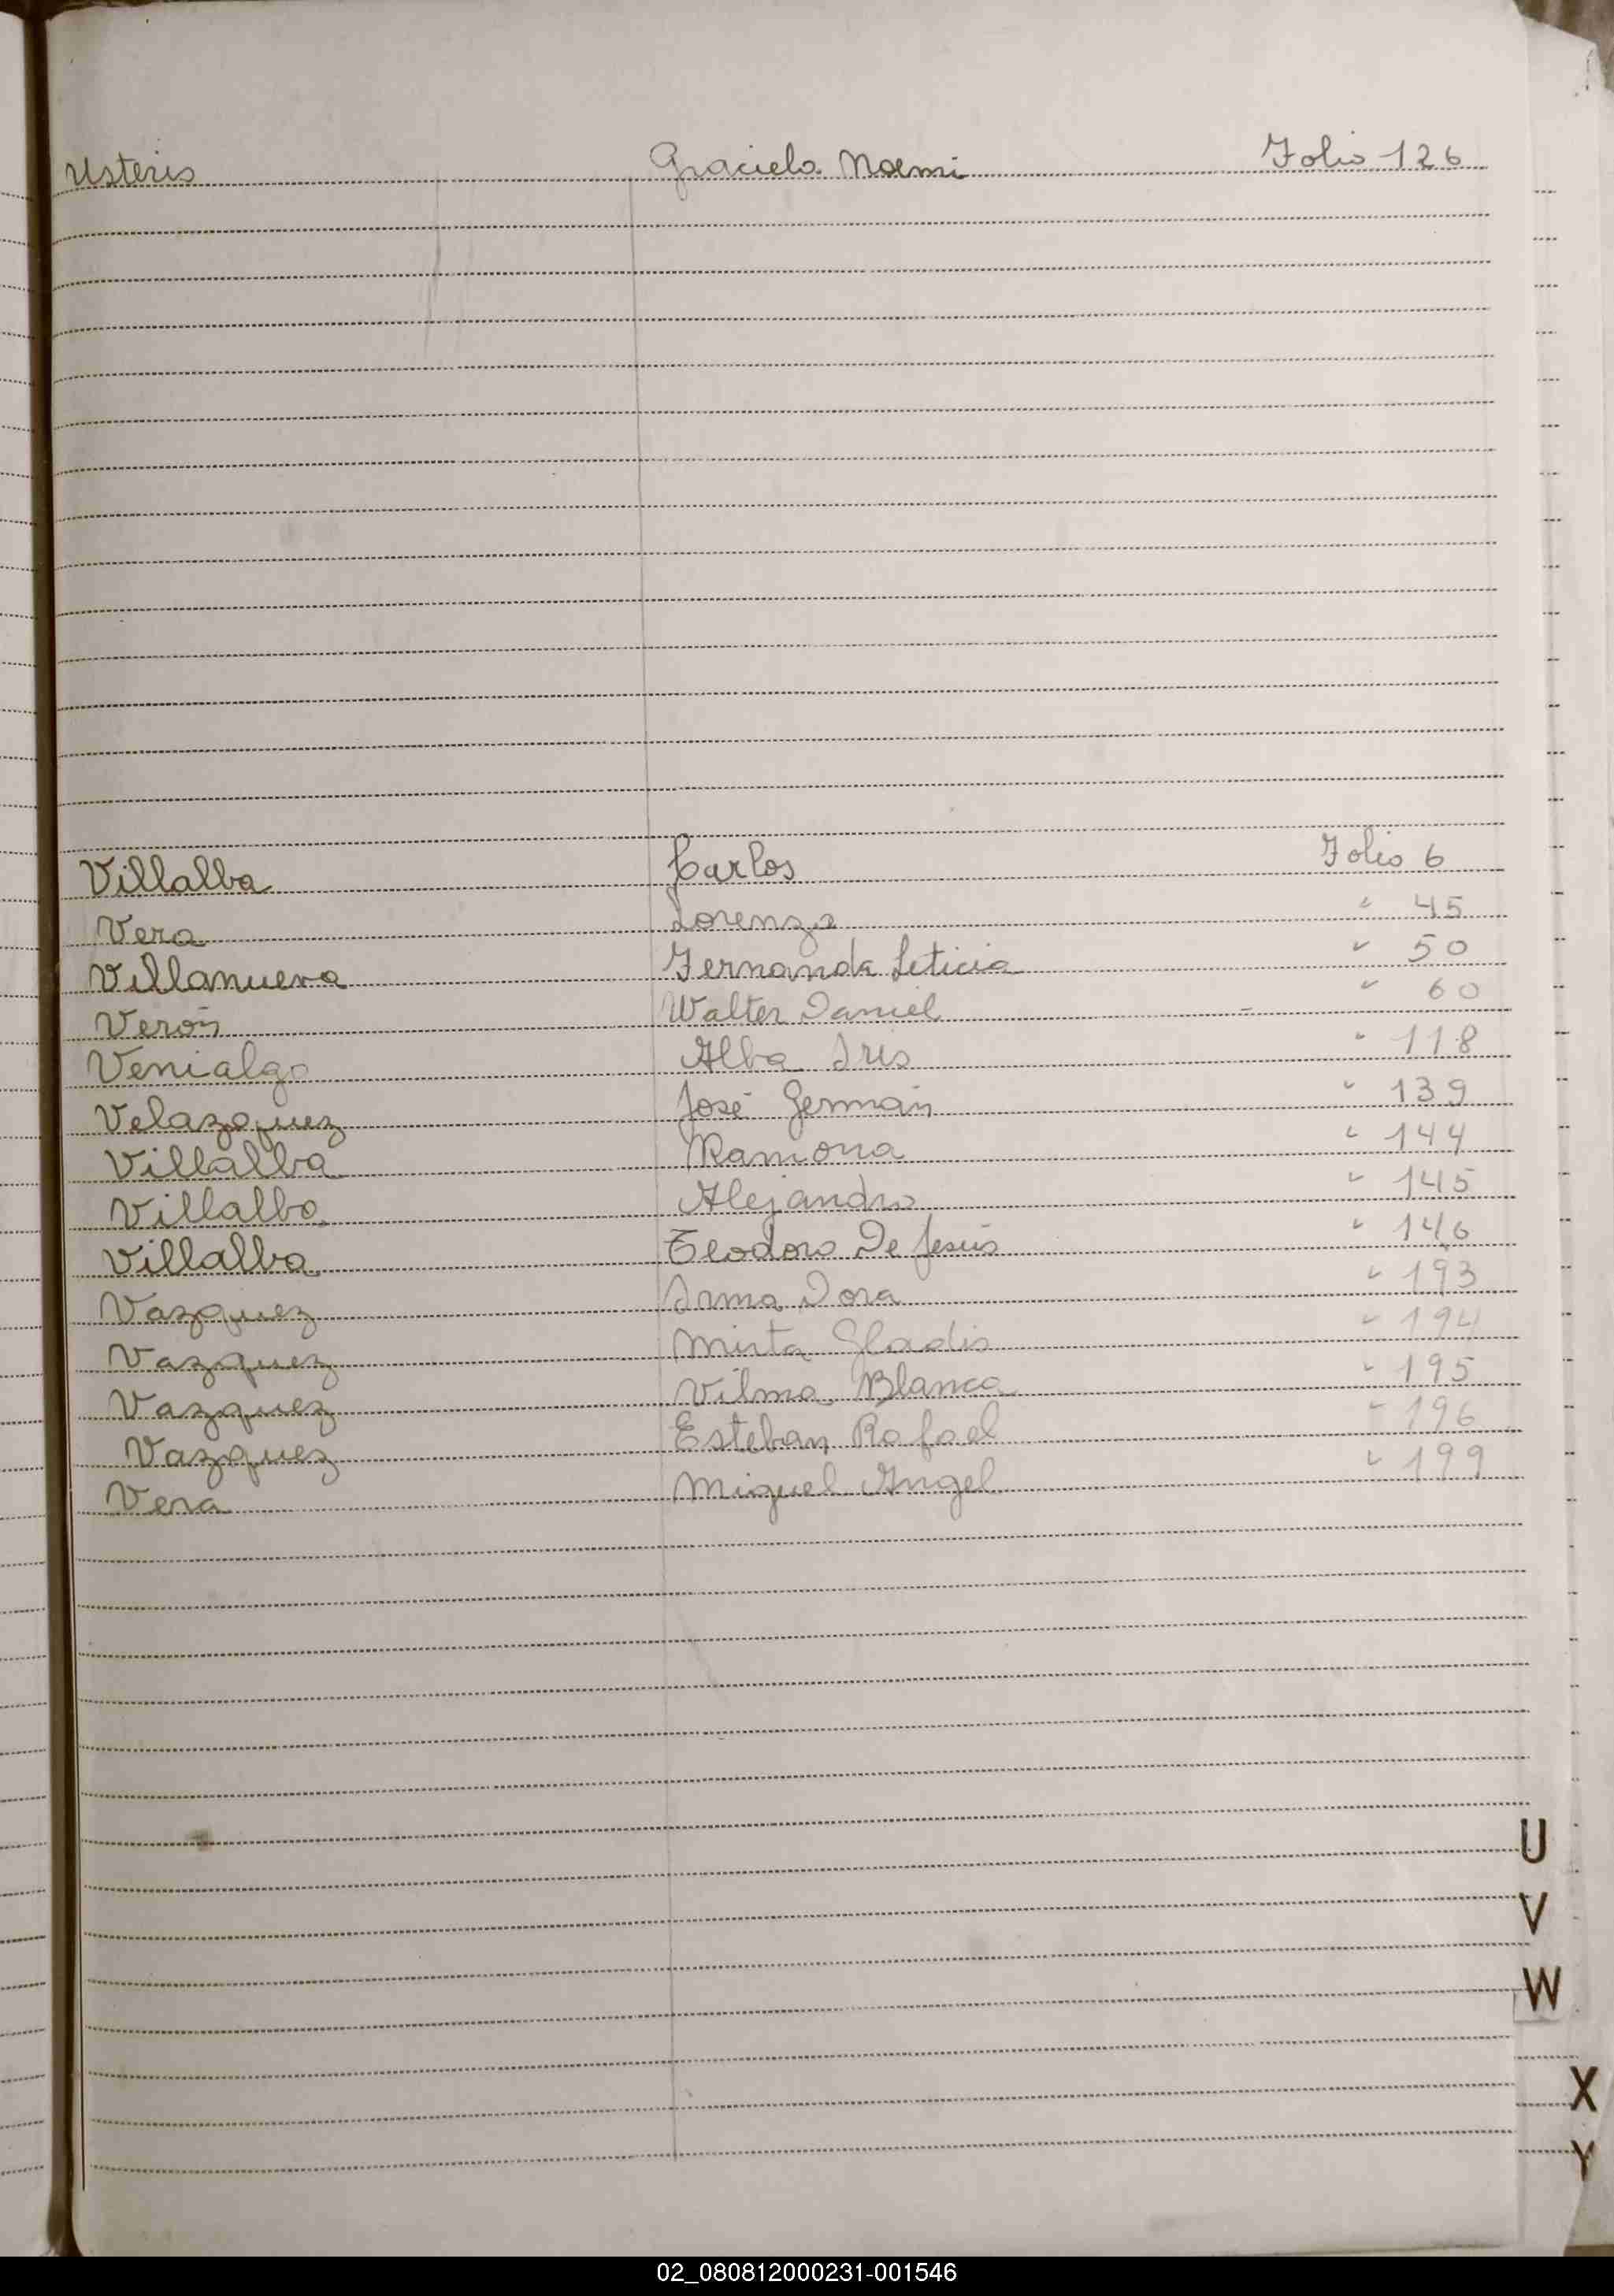 Usteris Graciela Noemi Folio 126
Villalba Carlos Folio 6
Vera Lorenza " 45
Villanueva Fernanda Leticia " 50
Verón Walter Daniel - " 60
Venialgo Alba Iris " 118
Velazquez José Germán " 139
Villalba Ramona " 144
Villalba Alejandro " 145
Villalba Teodoro De Jesús " 146
Vazquez Irma Dora " 193
Vazquez Mirta Gladis " 194
Vazquez Vilma Blanca " 195
Vazquez Esteban Rafael " 196
Vera Miguel Angel " 199
U
V
W
X
Y
02_080812000231-001546